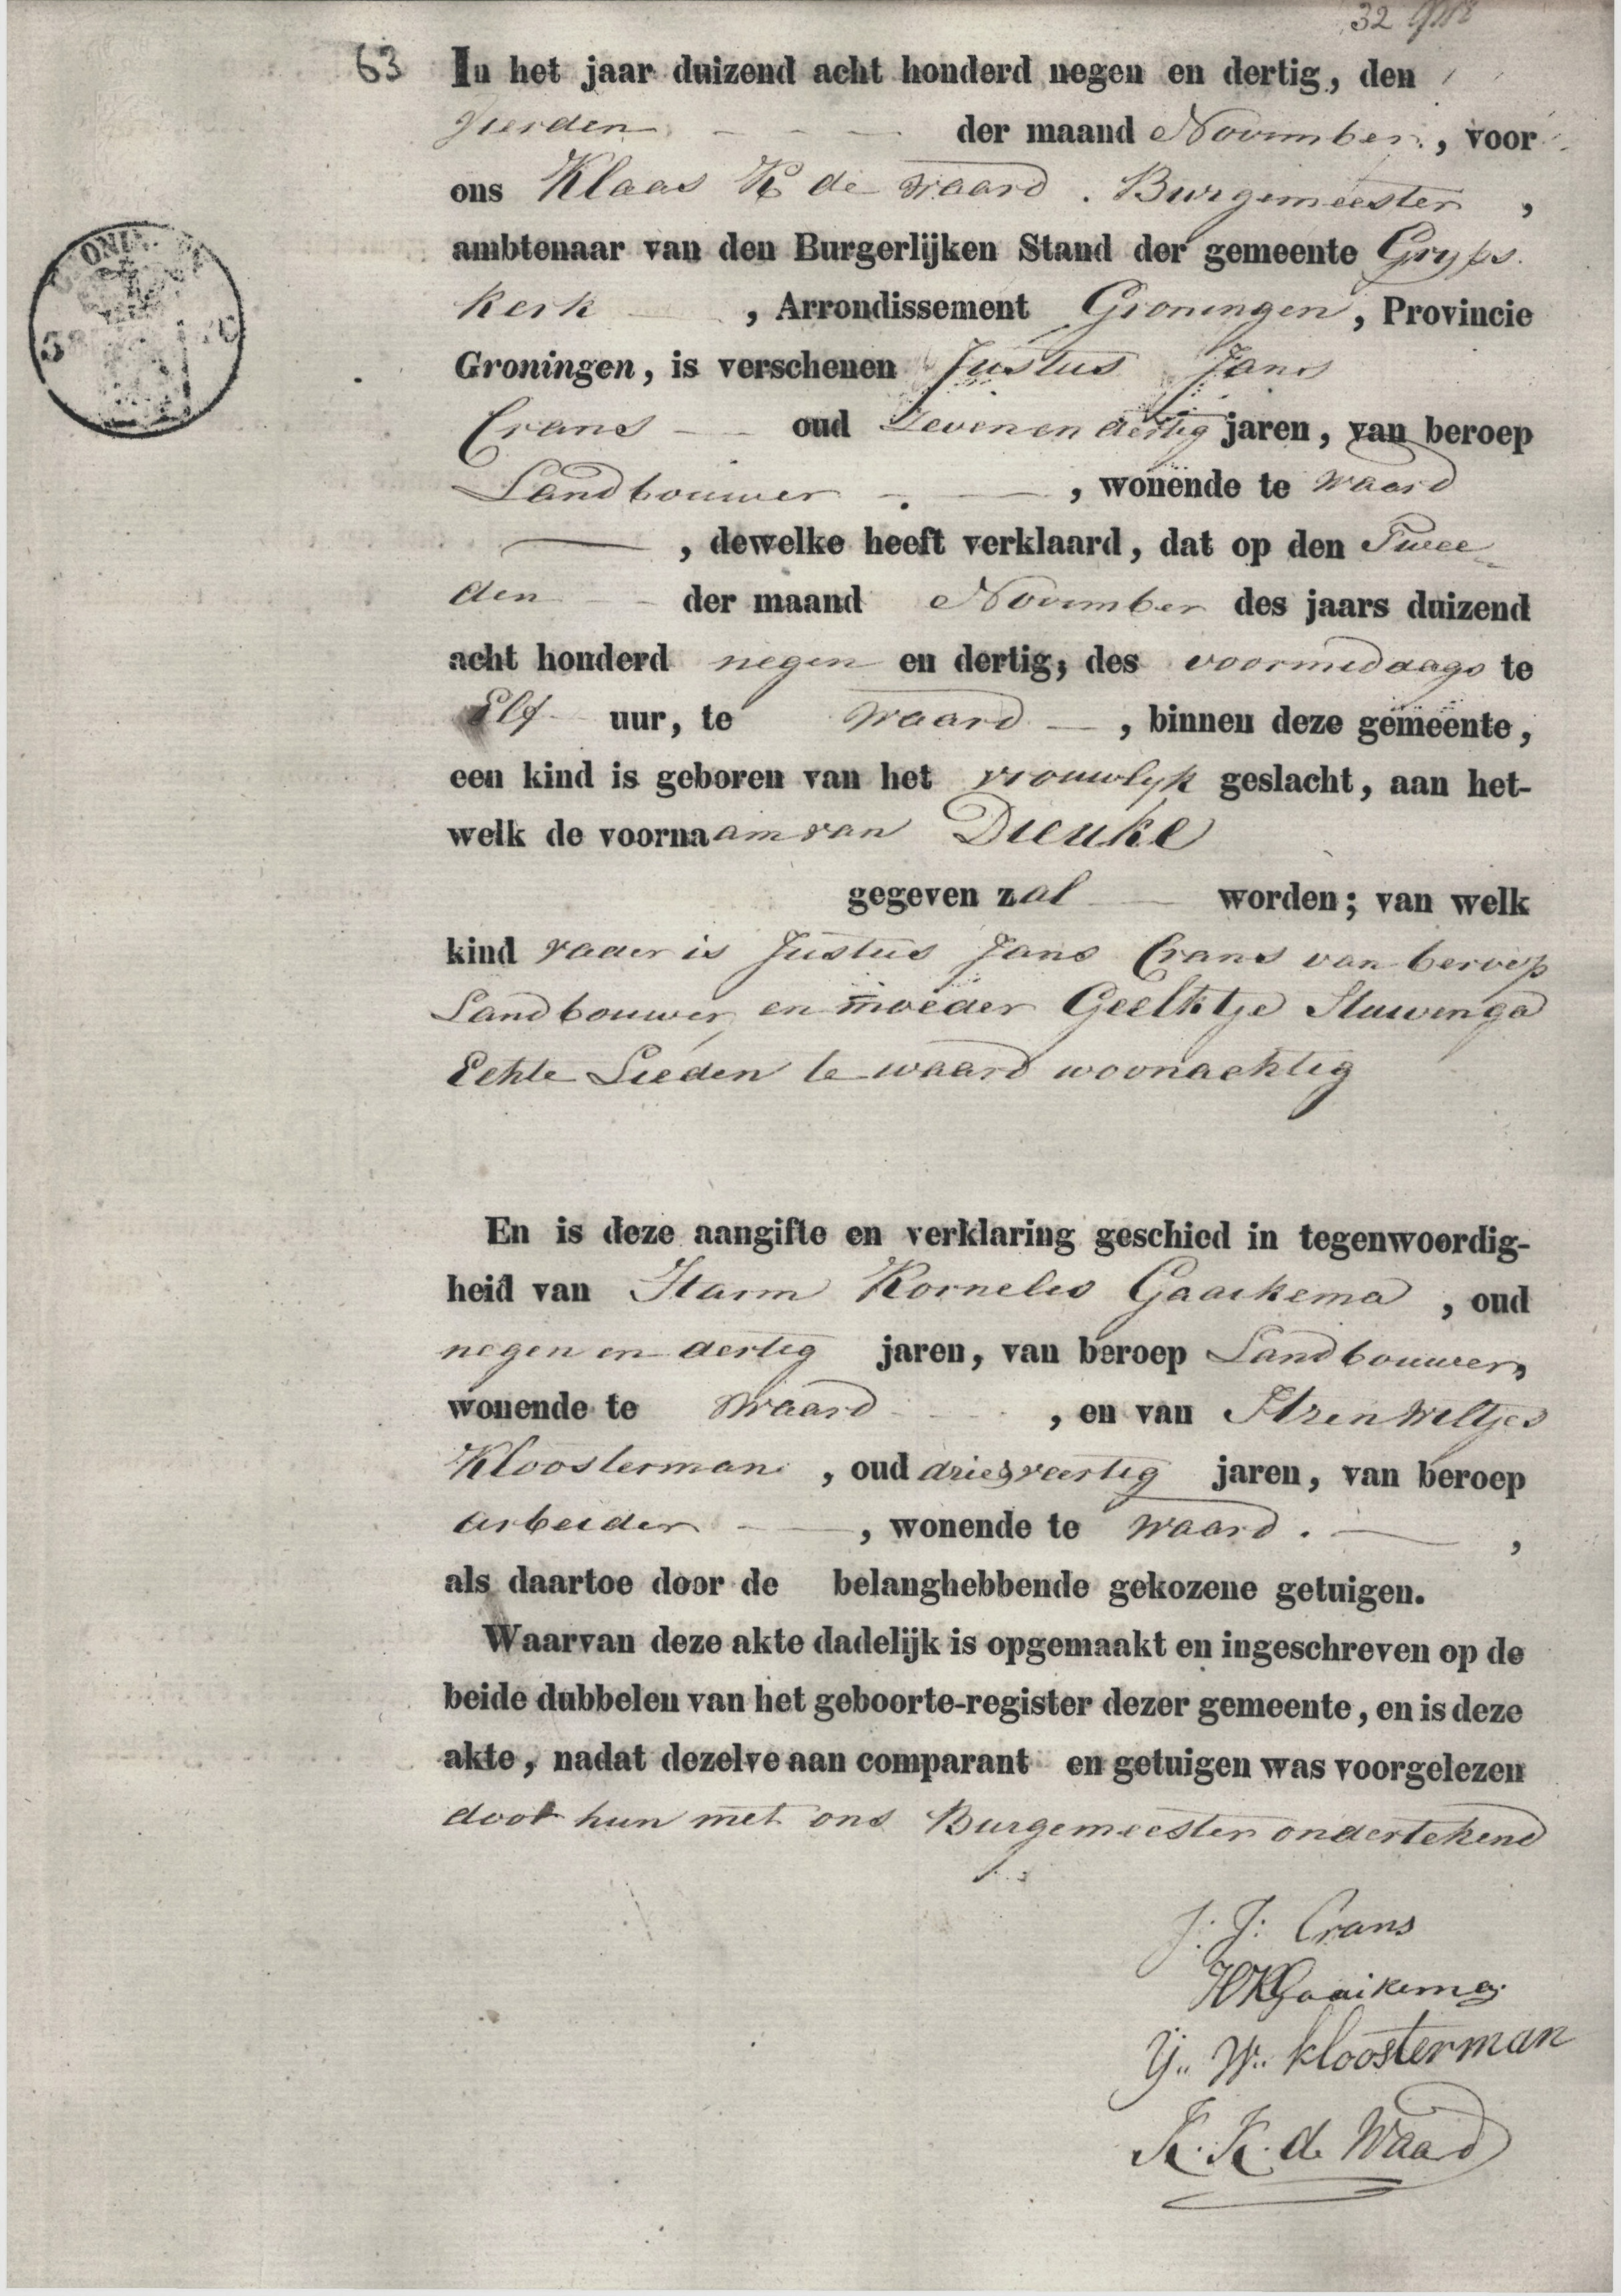 32
63 In het jaar duizend acht honderd negen en dertig, den
Vierden der maand November, voor
ons Klaas K de Waard. Burgemeester,
ambtenaar van den Burgerlijken Stand der gemeente Gryps
kerk, Arrondissement Groningen, Provincie
Groningen, is verschenen Justus Jans
Crans oud Zeven en dertig jaren, van beroep
Landbouwer, wonende te Waard
, dewelke heeft verklaard, dat op den Twee
den der maand November des jaars duizend
acht honderd negen en dertig, des voormiddags te
Elf uur, te Waard, binnen deze gemeente,
een kind is geboren van het vrouwlyk geslacht, aan het-
welk de voornaam van Dieuke
gegeven zal worden; van welk
kind vader is Justus Jans Crans van beroep
Landbouwer, en moeder Geelktje Stuivenga
Echte Lieden te waard woonachtig
En is deze aangifte en verklaring geschied in tegenwoordig-
heid van Harm Kornelis Gaaikema, oud
negen en dertig jaren, van beroep Landbouwer,
wonende te Waard, en van Wiltjes
Kloosterman, oud drie veertig jaren, van beroep
arbeider, wonende te Waard.,
als daartoe door de belanghebbende gekozene getuigen.
Waarvan deze akte dadelijk is opgemaakt en ingeschreven op de
beide dubbelen van het geboorte-register dezer gemeente, en is deze
akte, nadat dezelve aan comparant en getuigen was voorgelezen
door hun met ons Burgemeester ondertekend
J: J: Crans
HKGaaikema
IJ.. W.. Kloosterman
K. K. de Waard